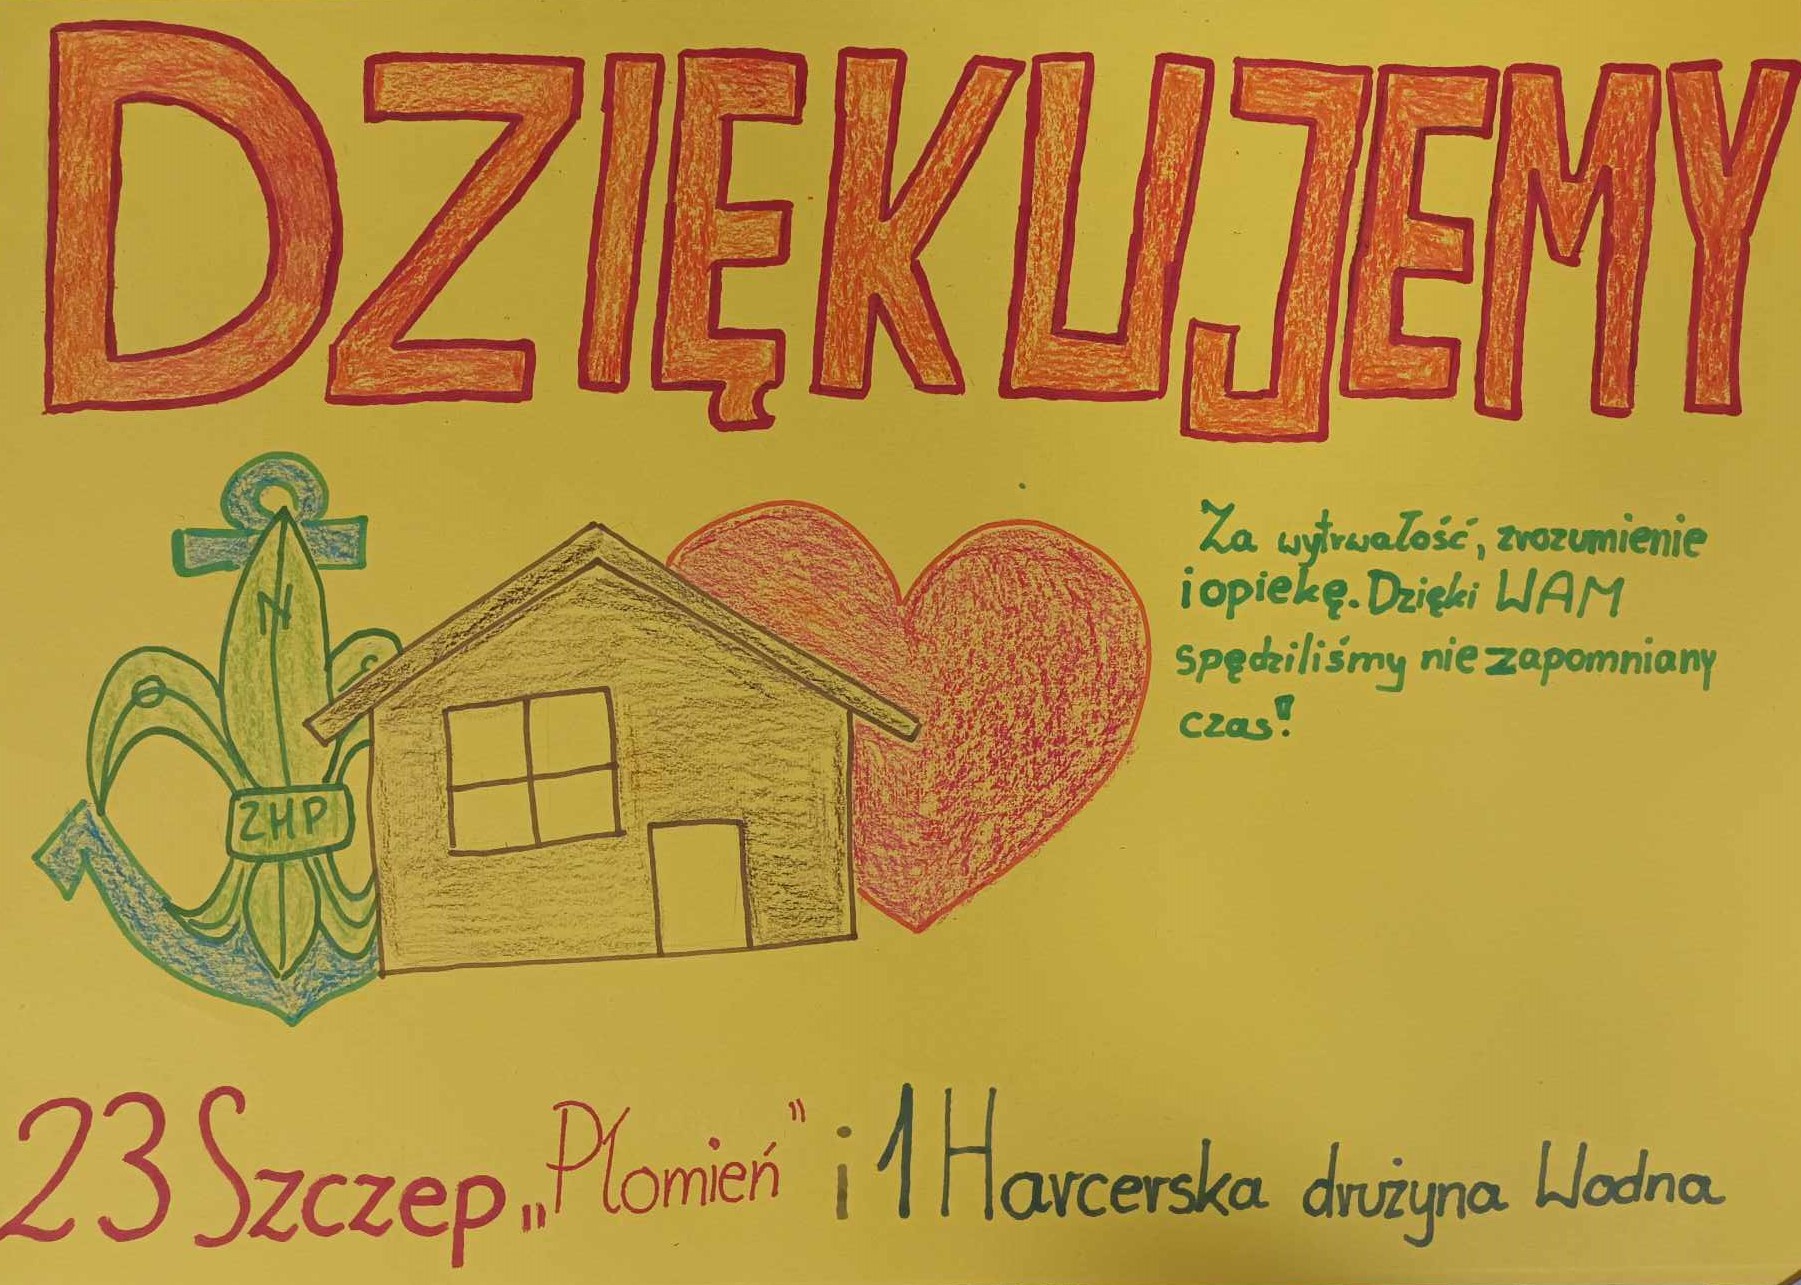 DZIĘKUJEMY
Za wytrwałość, zrozumienie
i opiekę. Dzięki WAM
spędziliśmy niezapomniany
czas!
N
ZHP
23 Szczep „Płomień" i 1 Harcerska drużyna Wodna